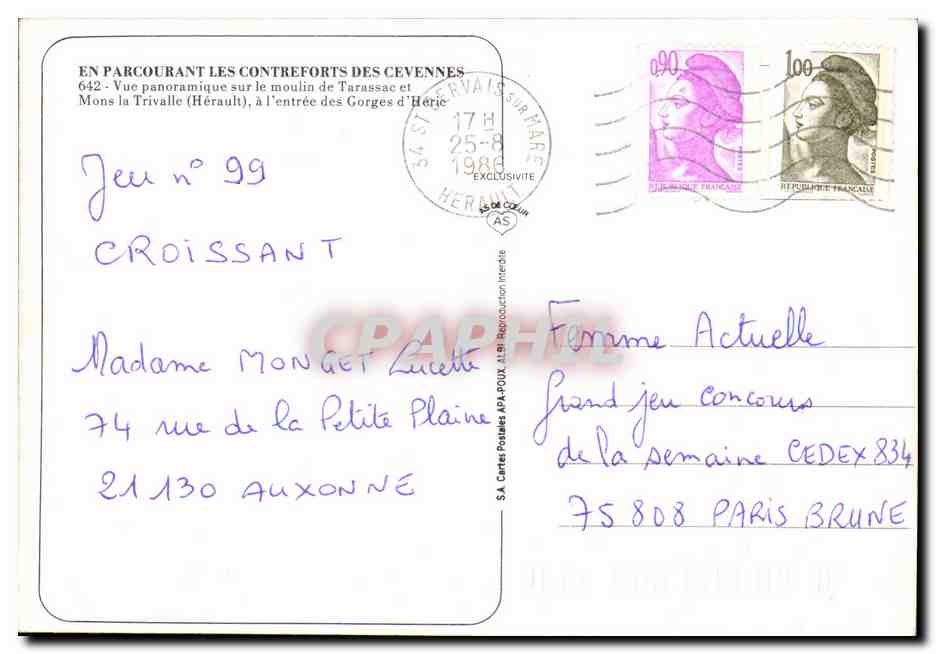 EN PARCOURANT LES CONTREFORTS DES CEVENNES
642 - Vue panoramique sur le moulin de Tarassac et
Mons la Trivalle (Hérault), à l'entrée des Gorges d'Héric
Jeu n° 99
CROISSANT
Madame MONGET Lucette
74 rue de la Petite Plaine
21130 AUXONNE
34 ST GERVAIS SUR MARE
17 H
25-8
1986
HERAULT
EXCLUSIVITE
AS DE CŒUR
AS
S.A. Cartes Postales APA-POUX, ALBI. Reproduction Interdite
0,90
POSTES
REPUBLIQUE FRANÇAISE
1,00
POSTES
REPUBLIQUE FRANÇAISE
Femme Actuelle
Grand jeu concours
de la semaine CEDEX 834
75 808 PARIS BRUNE
CPAPHIL